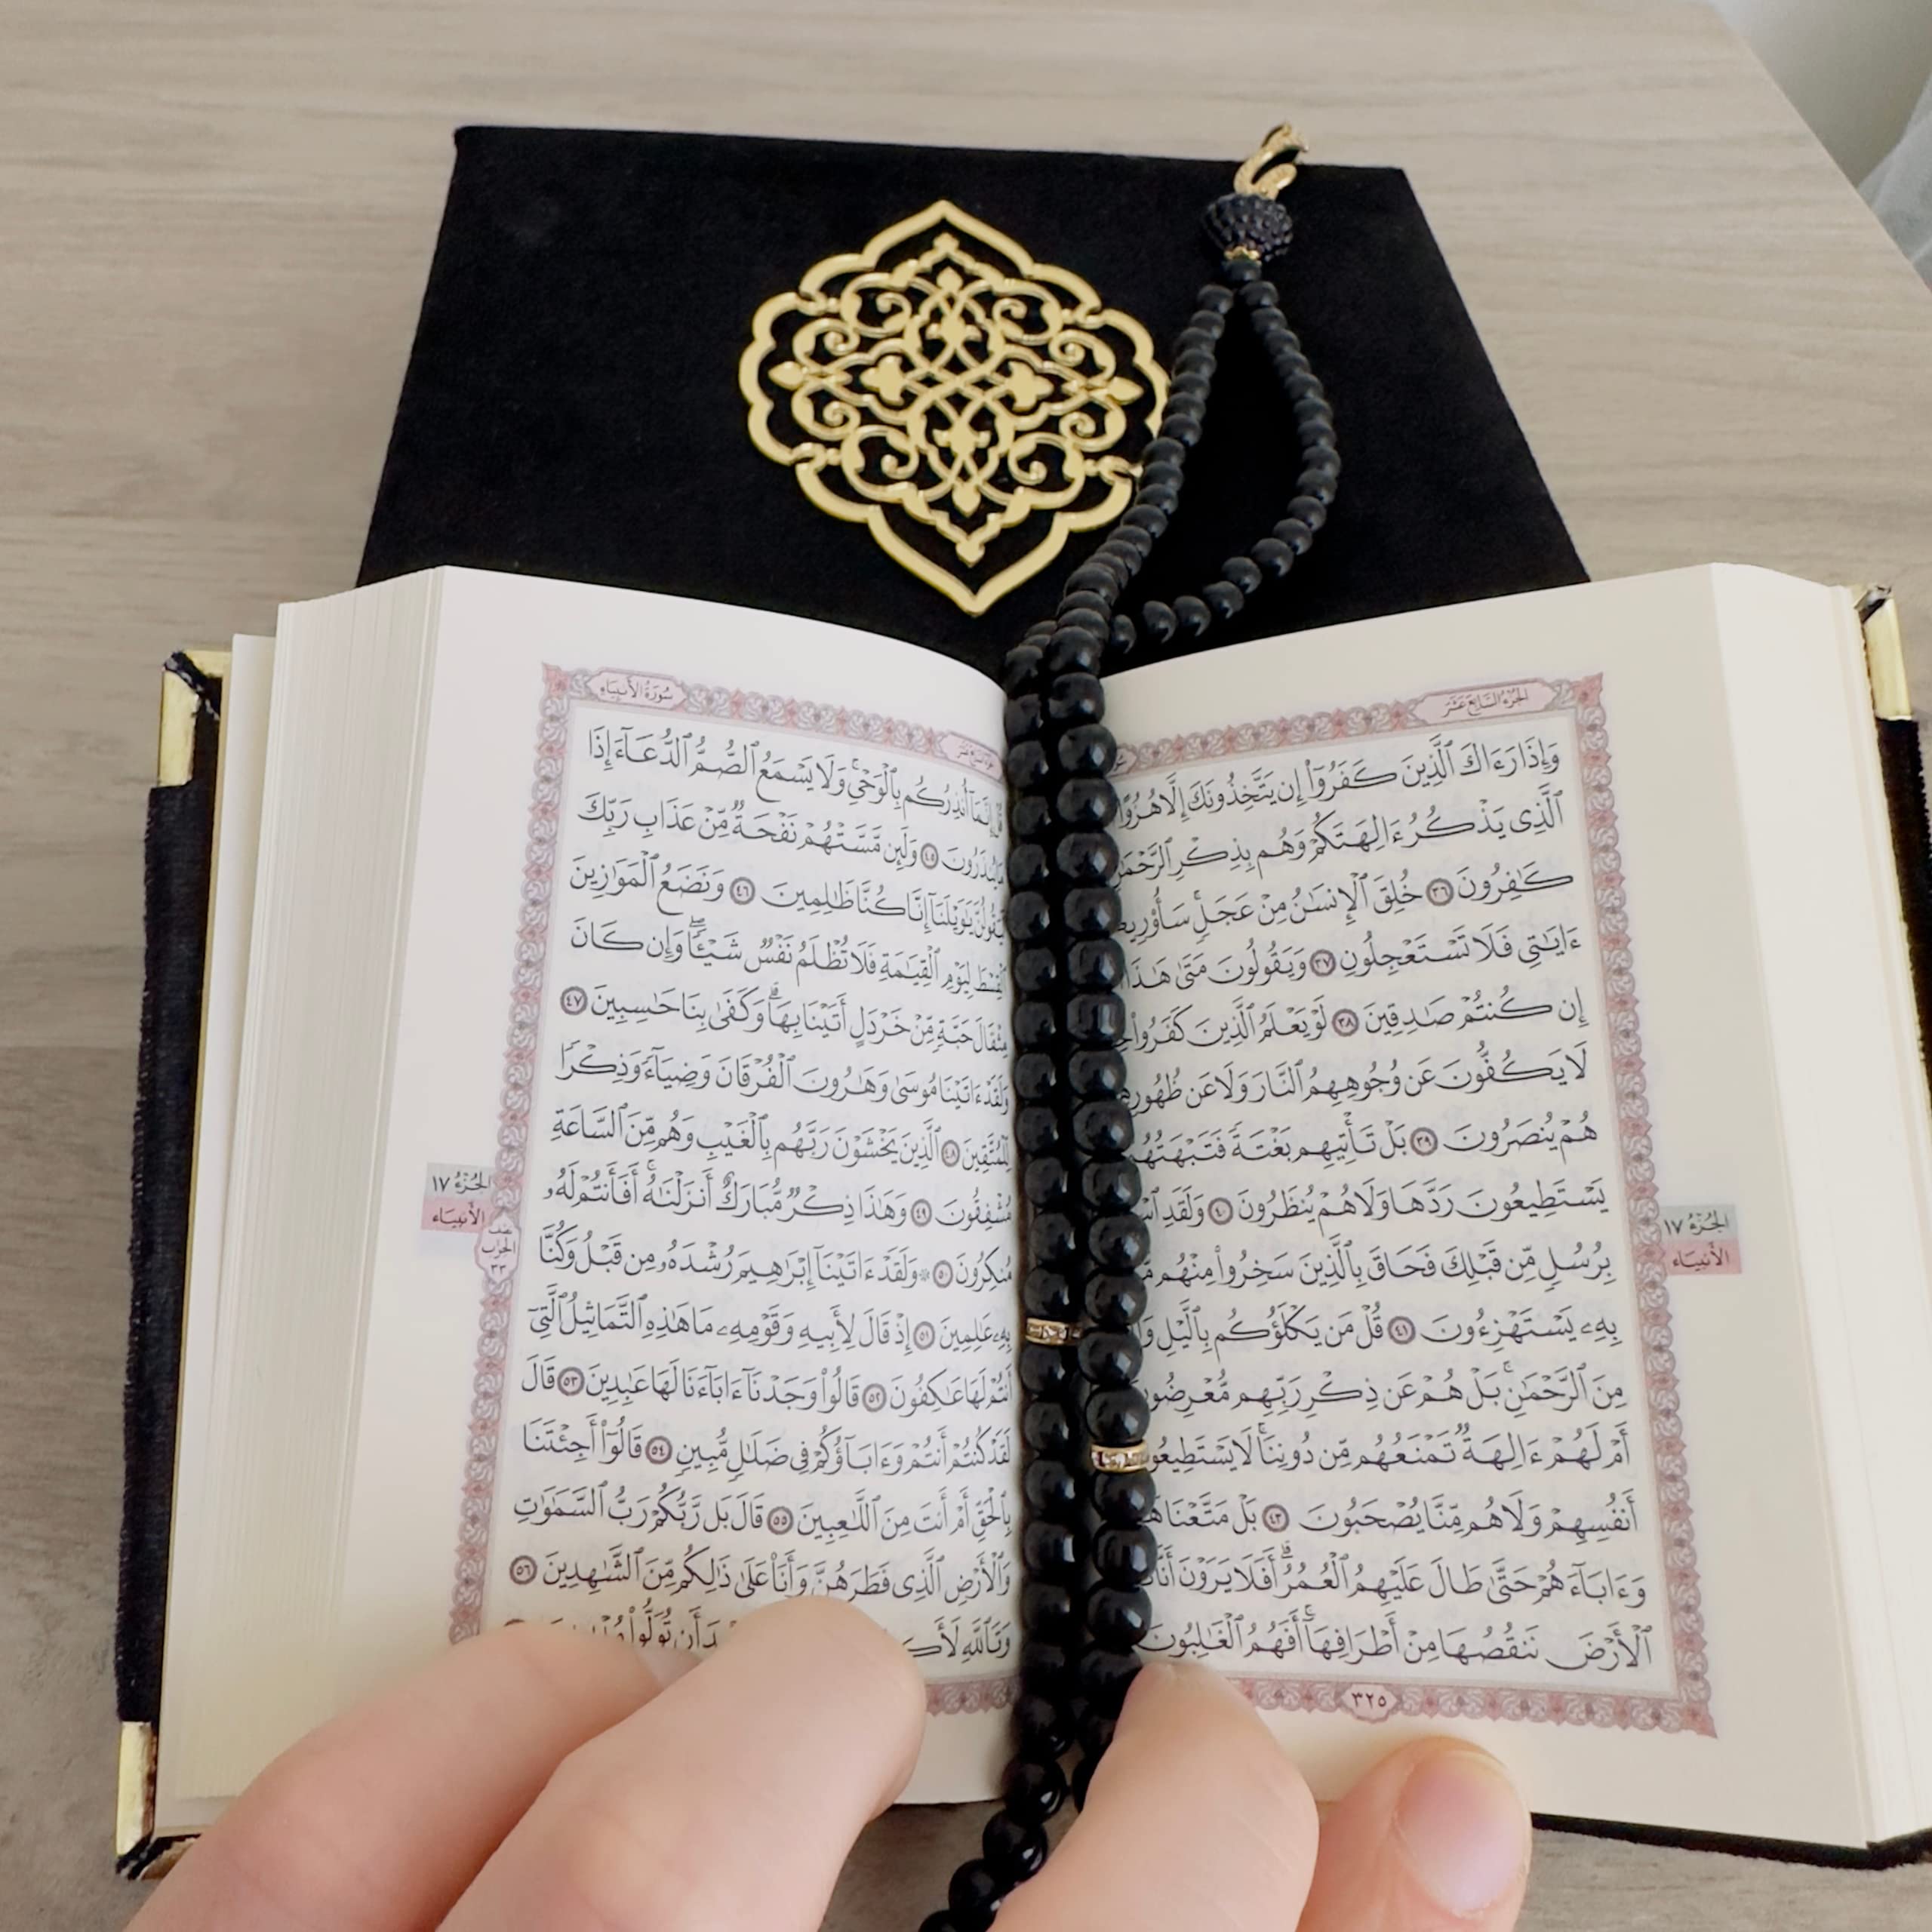 الجزء السابع عشر
وَإِذَا رَءَاكَ ٱلَّذِينَ كَفَرُوٓا۟ إِن يَتَّخِذُونَكَ إِلَّا هُزُوًا
ٱلَّذِى يَذْكُرُ ءَالِهَتَكُمْ وَهُم بِذِكْرِ ٱلرَّحْمَٰنِ
كَٰفِرُونَ ٣٦ خُلِقَ ٱلْإِنسَٰنُ مِنْ عَجَلٍ سَأُو۟رِي
ءَايَٰتِى فَلَا تَسْتَعْجِلُونِ ٣٧ وَيَقُولُونَ مَتَىٰ هَٰذَا
إِن كُنتُمْ صَٰدِقِينَ ٣٨ لَوْ يَعْلَمُ ٱلَّذِينَ كَفَرُوا۟
لَا يَكُفُّونَ عَن وُجُوهِهِمُ ٱلنَّارَ وَلَا عَن ظُهُورِهِ
هُمْ يُنصَرُونَ ٣٩ بَلْ تَأْتِيهِم بَغْتَةً فَتَبْهَتُهُمْ
يَسْتَطِيعُونَ رَدَّهَا وَلَا هُمْ يُنظَرُونَ ٤٠ وَلَقَدِ
بِرُسُلٍ مِّن قَبْلِكَ فَحَاقَ بِٱلَّذِينَ سَخِرُوا۟ مِنْهُم
بِهِۦ يَسْتَهْزِءُونَ ٤١ قُلْ مَن يَكْلَؤُكُم بِٱلَّيْلِ
مِنَ ٱلرَّحْمَٰنِ بَلْ هُمْ عَن ذِكْرِ رَبِّهِم مُّعْرِضُو
أَمْ لَهُمْ ءَالِهَةٌ تَمْنَعُهُم مِّن دُونِنَا لَا يَسْتَطِيعُو
أَنفُسِهِمْ وَلَا هُم مِّنَّا يُصْحَبُونَ ٤٣ بَلْ مَتَّعْنَا
وَءَابَآءَهُمْ حَتَّىٰ طَالَ عَلَيْهِمُ ٱلْعُمُرُ أَفَلَا يَرَوْنَ أَنَّا
ٱلْأَرْضَ نَنقُصُهَا مِنْ أَطْرَافِهَآ أَفَهُمُ ٱلْغَٰلِبُونَ
٣٢٥
الجزء ١٧
الأنبياء
سورة الأنبياء
إِنَّمَآ أُنذِرُكُم بِٱلْوَحْىِ وَلَا يَسْمَعُ ٱلصُّمُّ ٱلدُّعَآءَ إِذَا
مَا يُنذَرُونَ ٤٥ وَلَئِن مَّسَّتْهُمْ نَفْحَةٌ مِّنْ عَذَابِ رَبِّكَ
يَٰوَيْلَنَآ إِنَّا كُنَّا ظَٰلِمِينَ ٤٦ وَنَضَعُ ٱلْمَوَٰزِينَ
ٱلْقِسْطَ لِيَوْمِ ٱلْقِيَٰمَةِ فَلَا تُظْلَمُ نَفْسٌ شَيْـًٔا وَإِن كَانَ
مِثْقَالَ حَبَّةٍ مِّنْ خَرْدَلٍ أَتَيْنَا بِهَا وَكَفَىٰ بِنَا حَٰسِبِينَ ٤٧
وَلَقَدْ ءَاتَيْنَا مُوسَىٰ وَهَٰرُونَ ٱلْفُرْقَانَ وَضِيَآءً وَذِكْرًا
لِّلْمُتَّقِينَ ٤٨ ٱلَّذِينَ يَخْشَوْنَ رَبَّهُم بِٱلْغَيْبِ وَهُم مِّنَ ٱلسَّاعَةِ
مُشْفِقُونَ ٤٩ وَهَٰذَا ذِكْرٌ مُّبَارَكٌ أَنزَلْنَٰهُ أَفَأَنتُمْ لَهُۥ
مُنكِرُونَ ٥٠ ۞ وَلَقَدْ ءَاتَيْنَآ إِبْرَٰهِيمَ رُشْدَهُۥ مِن قَبْلُ وَكُنَّا
بِهِۦ عَٰلِمِينَ ٥١ إِذْ قَالَ لِأَبِيهِ وَقَوْمِهِۦ مَا هَٰذِهِ ٱلتَّمَاثِيلُ ٱلَّتِىٓ
أَنتُمْ لَهَا عَٰكِفُونَ ٥٢ قَالُوا۟ وَجَدْنَآ ءَابَآءَنَا لَهَا عَٰبِدِينَ ٥٣ قَالَ
لَقَدْ كُنتُمْ أَنتُمْ وَءَابَآؤُكُمْ فِى ضَلَٰلٍ مُّبِينٍ ٥٤ قَالُوٓا۟ أَجِئْتَنَا
بِٱلْحَقِّ أَمْ أَنتَ مِنَ ٱللَّٰعِبِينَ ٥٥ قَالَ بَل رَّبُّكُمْ رَبُّ ٱلسَّمَٰوَٰتِ
وَٱلْأَرْضِ ٱلَّذِى فَطَرَهُنَّ وَأَنَا۠ عَلَىٰ ذَٰلِكُم مِّنَ ٱلشَّٰهِدِينَ ٥٦
وَتَٱللَّهِ أَن تُوَلُّوا۟
الجزء ١٧
الأنبياء
نصف
الحزب
٣٣